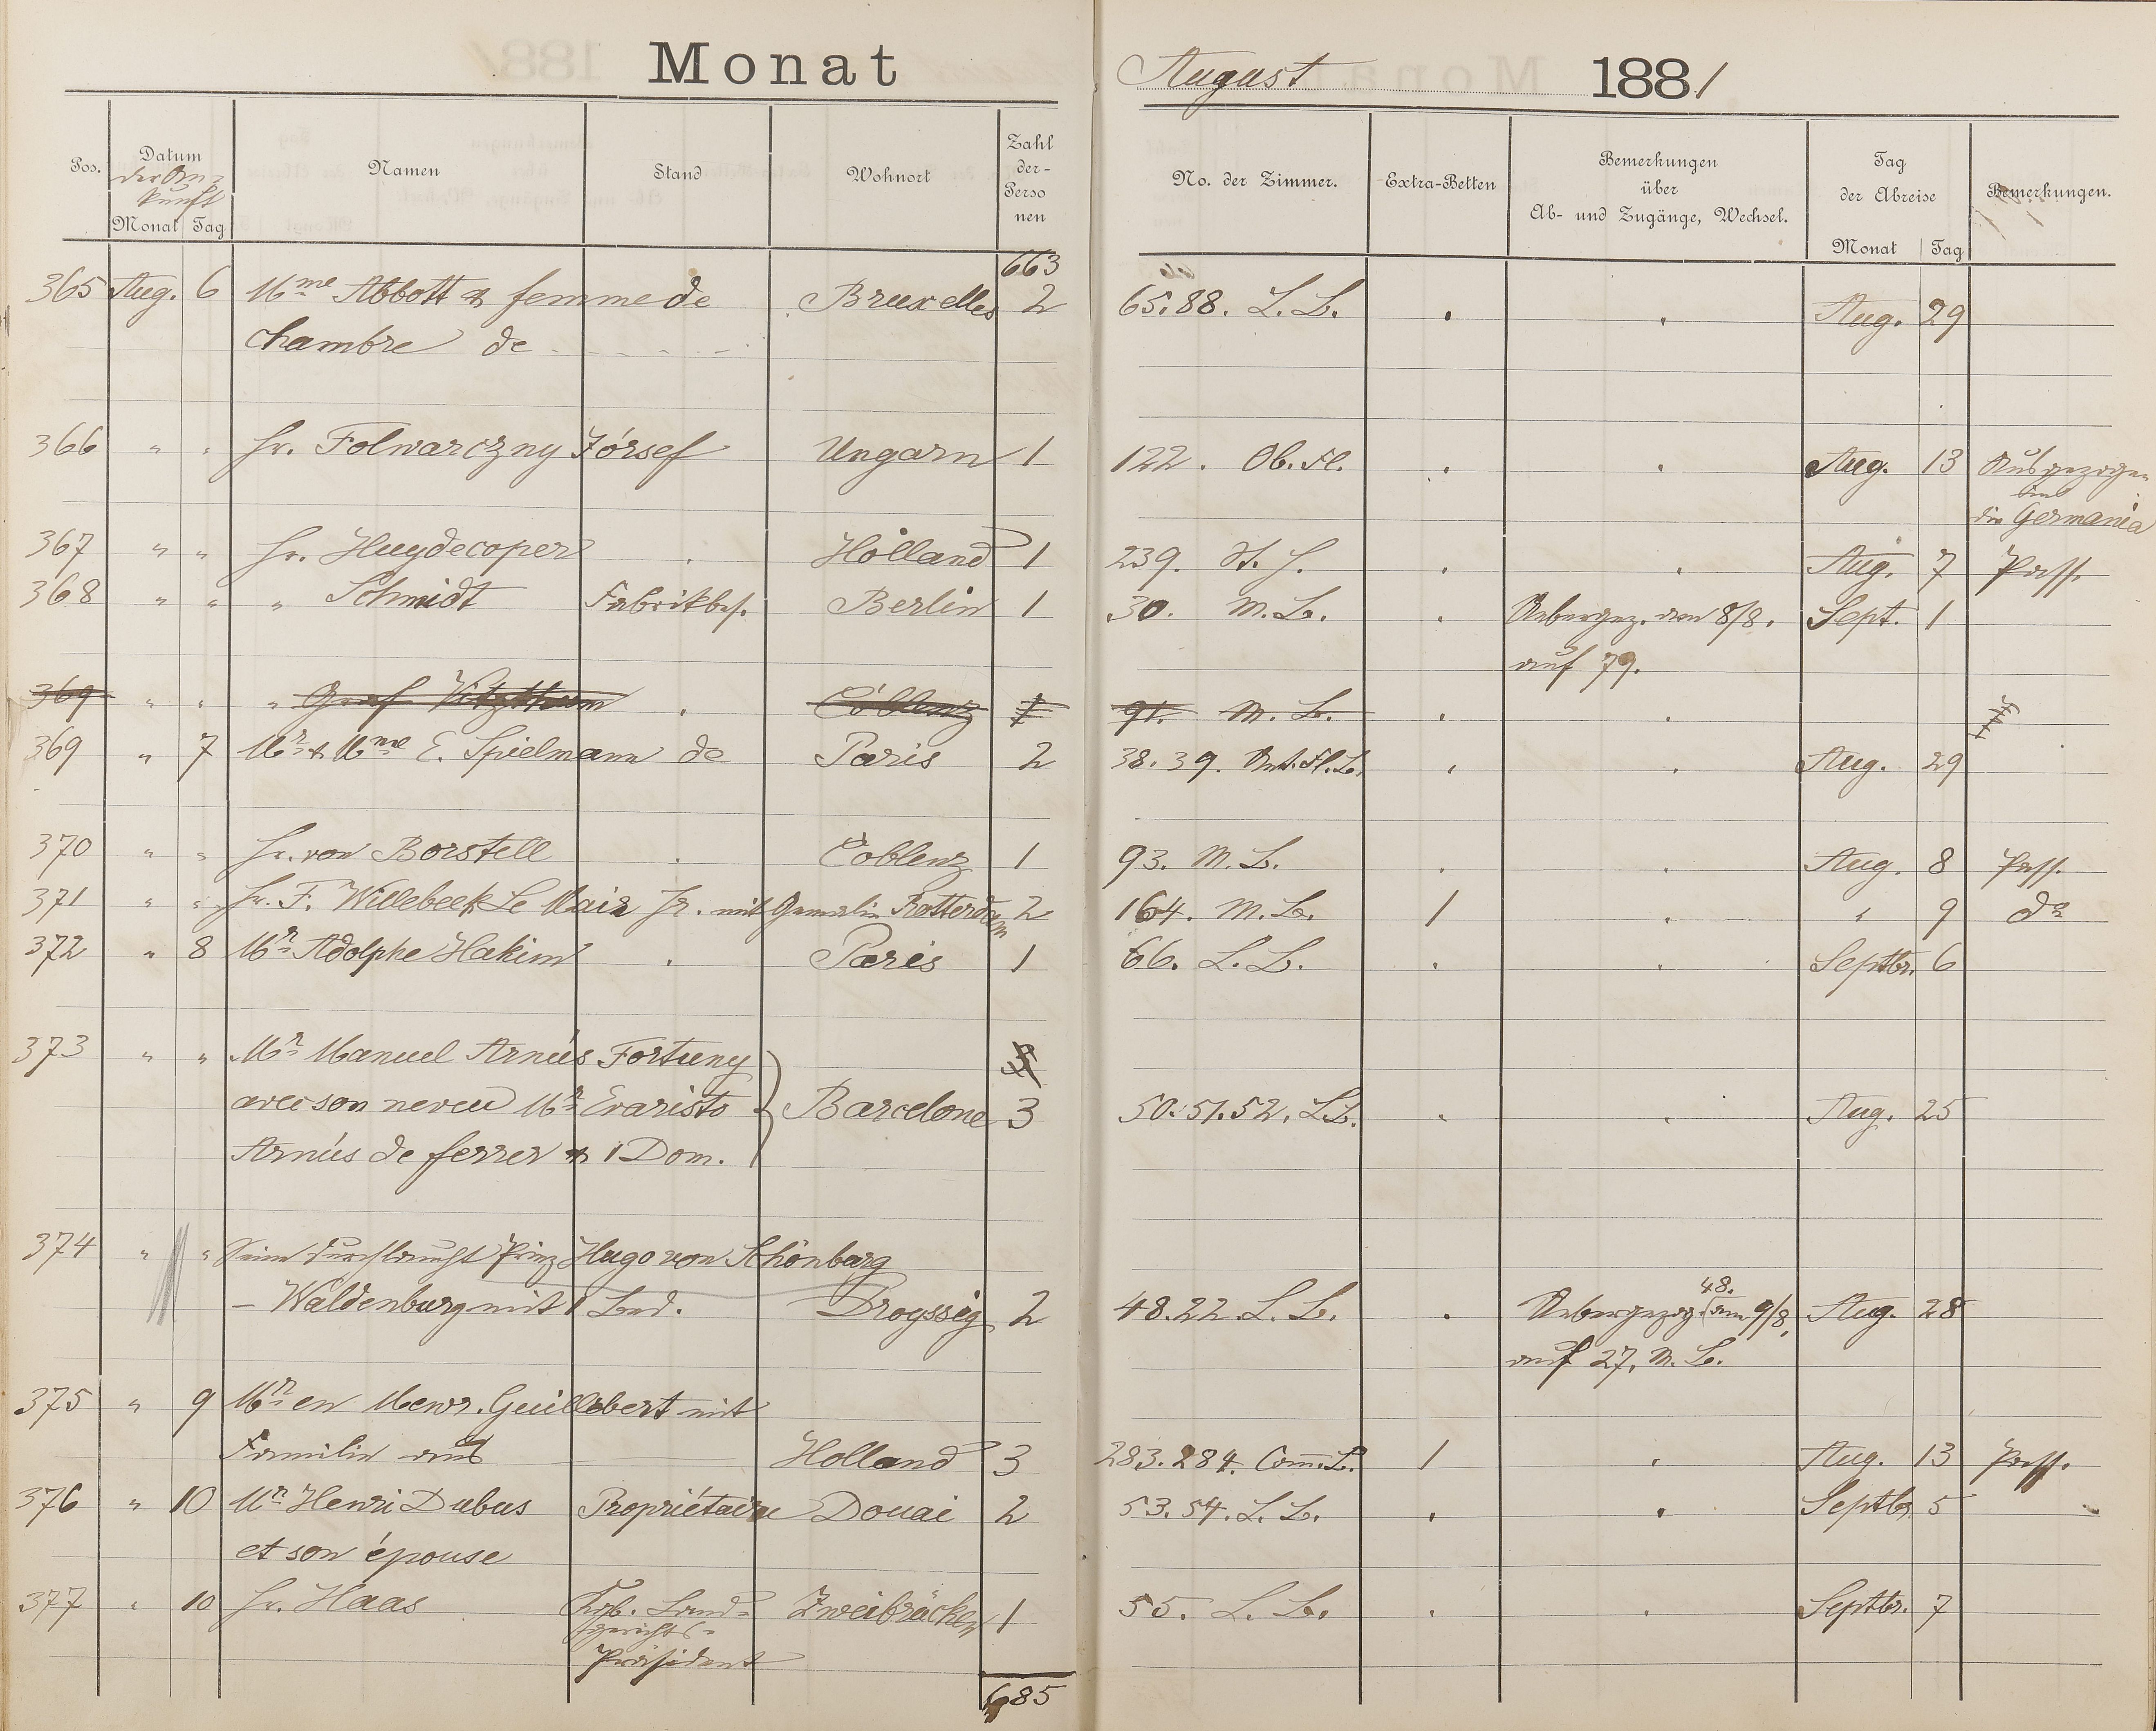 Monat August 1881
Pos. Datum der Ankunft Monat Tag Namen Stand Wohnort Zahl der Personen No. der Zimmer. Extra-Betten Bemerkungen über Ab- und Zugänge, Wechsel. Tag der Abreise Monat Tag Bemerkungen.
663
365 Aug. 6 Mme Abbott & femme de Bruxelles 2 65.88. L. B. Aug. 29
chambre de
366 " " Hr. Folwarczny József Ungarn 1 122. Ob. Fl. Aug. 13 Ausgezogen
in
die Germania
367 " " Hr. Huydecoper Holland 1 239. St. H. Aug. 7 Pass.
368 " " " Schmidt Fabrikbes. Berlin 1 30. M. B. Uebergez. am 8/8. Sept. 1
auf 79.
369 " " " Graf Vitzthum Coblenz 1 91. M. B.
369 " 7 Mr & Mme E. Spielmann de Paris 2 38.39. Unt. Fl. B. Aug. 29
370 " " Hr. von Borstell Coblenz 1 93. M. B. Aug. 8 Pass.
371 " " Hr. F. Willebeek Le Mair Jr. mit Gemalin Rotterdam 2 164. M. B. 1 " 9 do
372 " 8 Mr Adolphe Hakim Paris 1 66. L. B. Septbr. 6
373 " " Mr Manuel Arnús Fortuny
avec son neveu Mr Evaristo Barcelone 3 50.51.52. L.B. Aug. 25
Arnús de ferrer & 1 Dom.
374 " " Seine Durchlaucht Prinz Hugo von Schönburg
48.
– Waldenburg mit 1 Bed. Droyssig 2 48.22. L. B. Uebergezog. am 9/8. Aug. 28
auf 27. M. B.
375 " 9 Mr en Mevr. Guillebert mit
Familie aus Holland 3 283.284. Com. B. 1 Aug. 13 Pass.
376 " 10 Mr Henri Dubus Propriétaire Douai 2 53.54. L. B. Septbr. 5
et son épouse
377 " 10 Hr. Haas Kgb. Land- Zweibrücken 1 55. L. B. Septbr. 7
gerichts-
Präsident
685